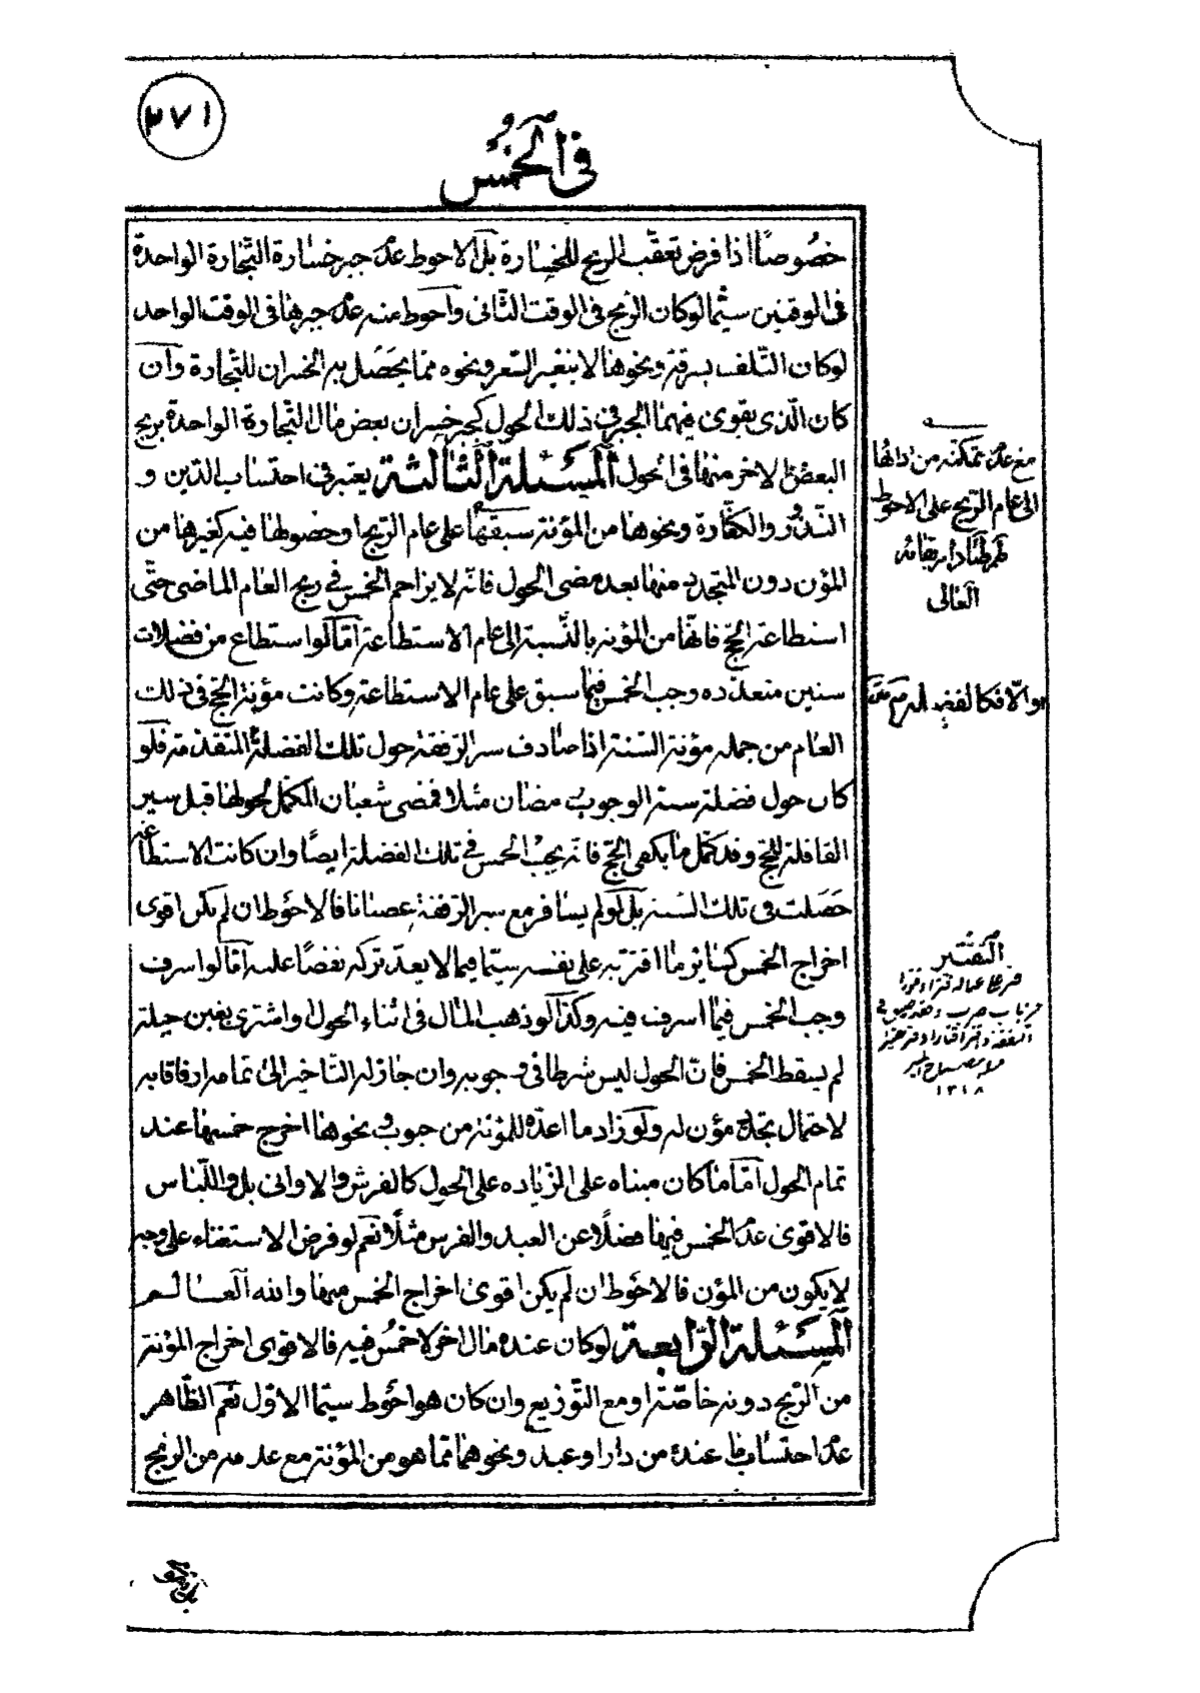 ٢٧١
في الخمس
خصوصًا اذا فرض تعقّب الربح للخسارة بل الاحوط عدم جبر خسارة التّجارة الواحدة
في الوقتين سيّما لو كان الرّبح في الوقت الثّاني واحوط منه عدم جبرها في الوقت الواحد
لو كان التّلف بسرقة ونحوها لا بتغيّر السّعر ونحوه ممّا يحصل به الخسران للتّجارة وان
كان الّذي يقوى فيهما الجبر في ذلك الحول كجبر خسران بعض مال التّجارة الواحدة بربح
البعض الاخر منها في الحول المسئلة الثّالثة يعتبر في احتساب الدّين و
النّذور والكفّارة ونحوها من المؤنة سبقها على عام الرّبح او حصولها فيه كغيرها من
المؤن دون المتجدد منها بعد مضى الحول فانّه لا يزاحم الخمس في ربح العام الماضي حتّى
استطاعة الحجّ فانّها من المؤنة بالنّسبة الى عام الاستطاعة امّا لو استطاع من فضلات
سنين متعدّده وجب الخمس فيما سبق على عام الاستطاعة وكانت مؤنة الحجّ في ذلك
العام من جملة مؤنة السّنة اذا صادف سير الرّفقة حول تلك الفضلة المتقدّمة فلو
كان حول فضلة سنة الوجوب رمضان مثلا فمضى شعبان المكمّل لحولها قبل سير
القافلة للحجّ وقد كمّل ما يكفي الحجّ فانّه يجب الخمس في تلك الفضلة ايضًا وان كانت الاستطاعة
حصلت في تلك السّنة بل لو لم يسافر مع سير الرّفقة عصيانا فالاحوط ان لم يكن اقوى
اخراج الخمس كساير ما اقتر به على نفسه سيّما فيما لا يعدّ تركه نقصًا عليه امّا لو اسرف
وجب الخمس فيما اسرف فيه وكذا لو ذهب المال في اثناء الحول او اشترى بغبن حيلة
لم يسقط الخمس فانّ الحول ليس شرطا في وجوبه وان جاز له التّاخير الى تمامه ارفاقا به
لاحتمال تجدّد مؤن له ولو زاد ما اعدّه للمؤنة من حبوب ونحوها اخرج خمسها عند
تمام الحول امّا ما كان مبناه على الزّياده على الحول كالفرش والاواني بل واللّباس
فالاقوى عدم الخمس فيها فضلًا عن العبد والفرس مثلًا نعم لو فرض الاستغناء على وجه
لا يكون من المؤن فالاحوط ان لم يكن اقوى اخراج الخمس منها والله العالم
المسئلة الرّابعة لو كان عنده مال اخر لا خمس فيه فالاقوى اخراج المؤنة
من الرّبح دونه خاصّة او مع التّوزيع وان كان هو احوط سيّما الاوّل نعم الظّاهر
عدم احتساب ما عنده من دار او عبد ونحوهما ممّا هو من المؤنة مع عدمه من الرّبح
مع عدم تمكنه من ادائها
الى عام الرّبح على الاحوط
العالى
التقتير
١٣١٨